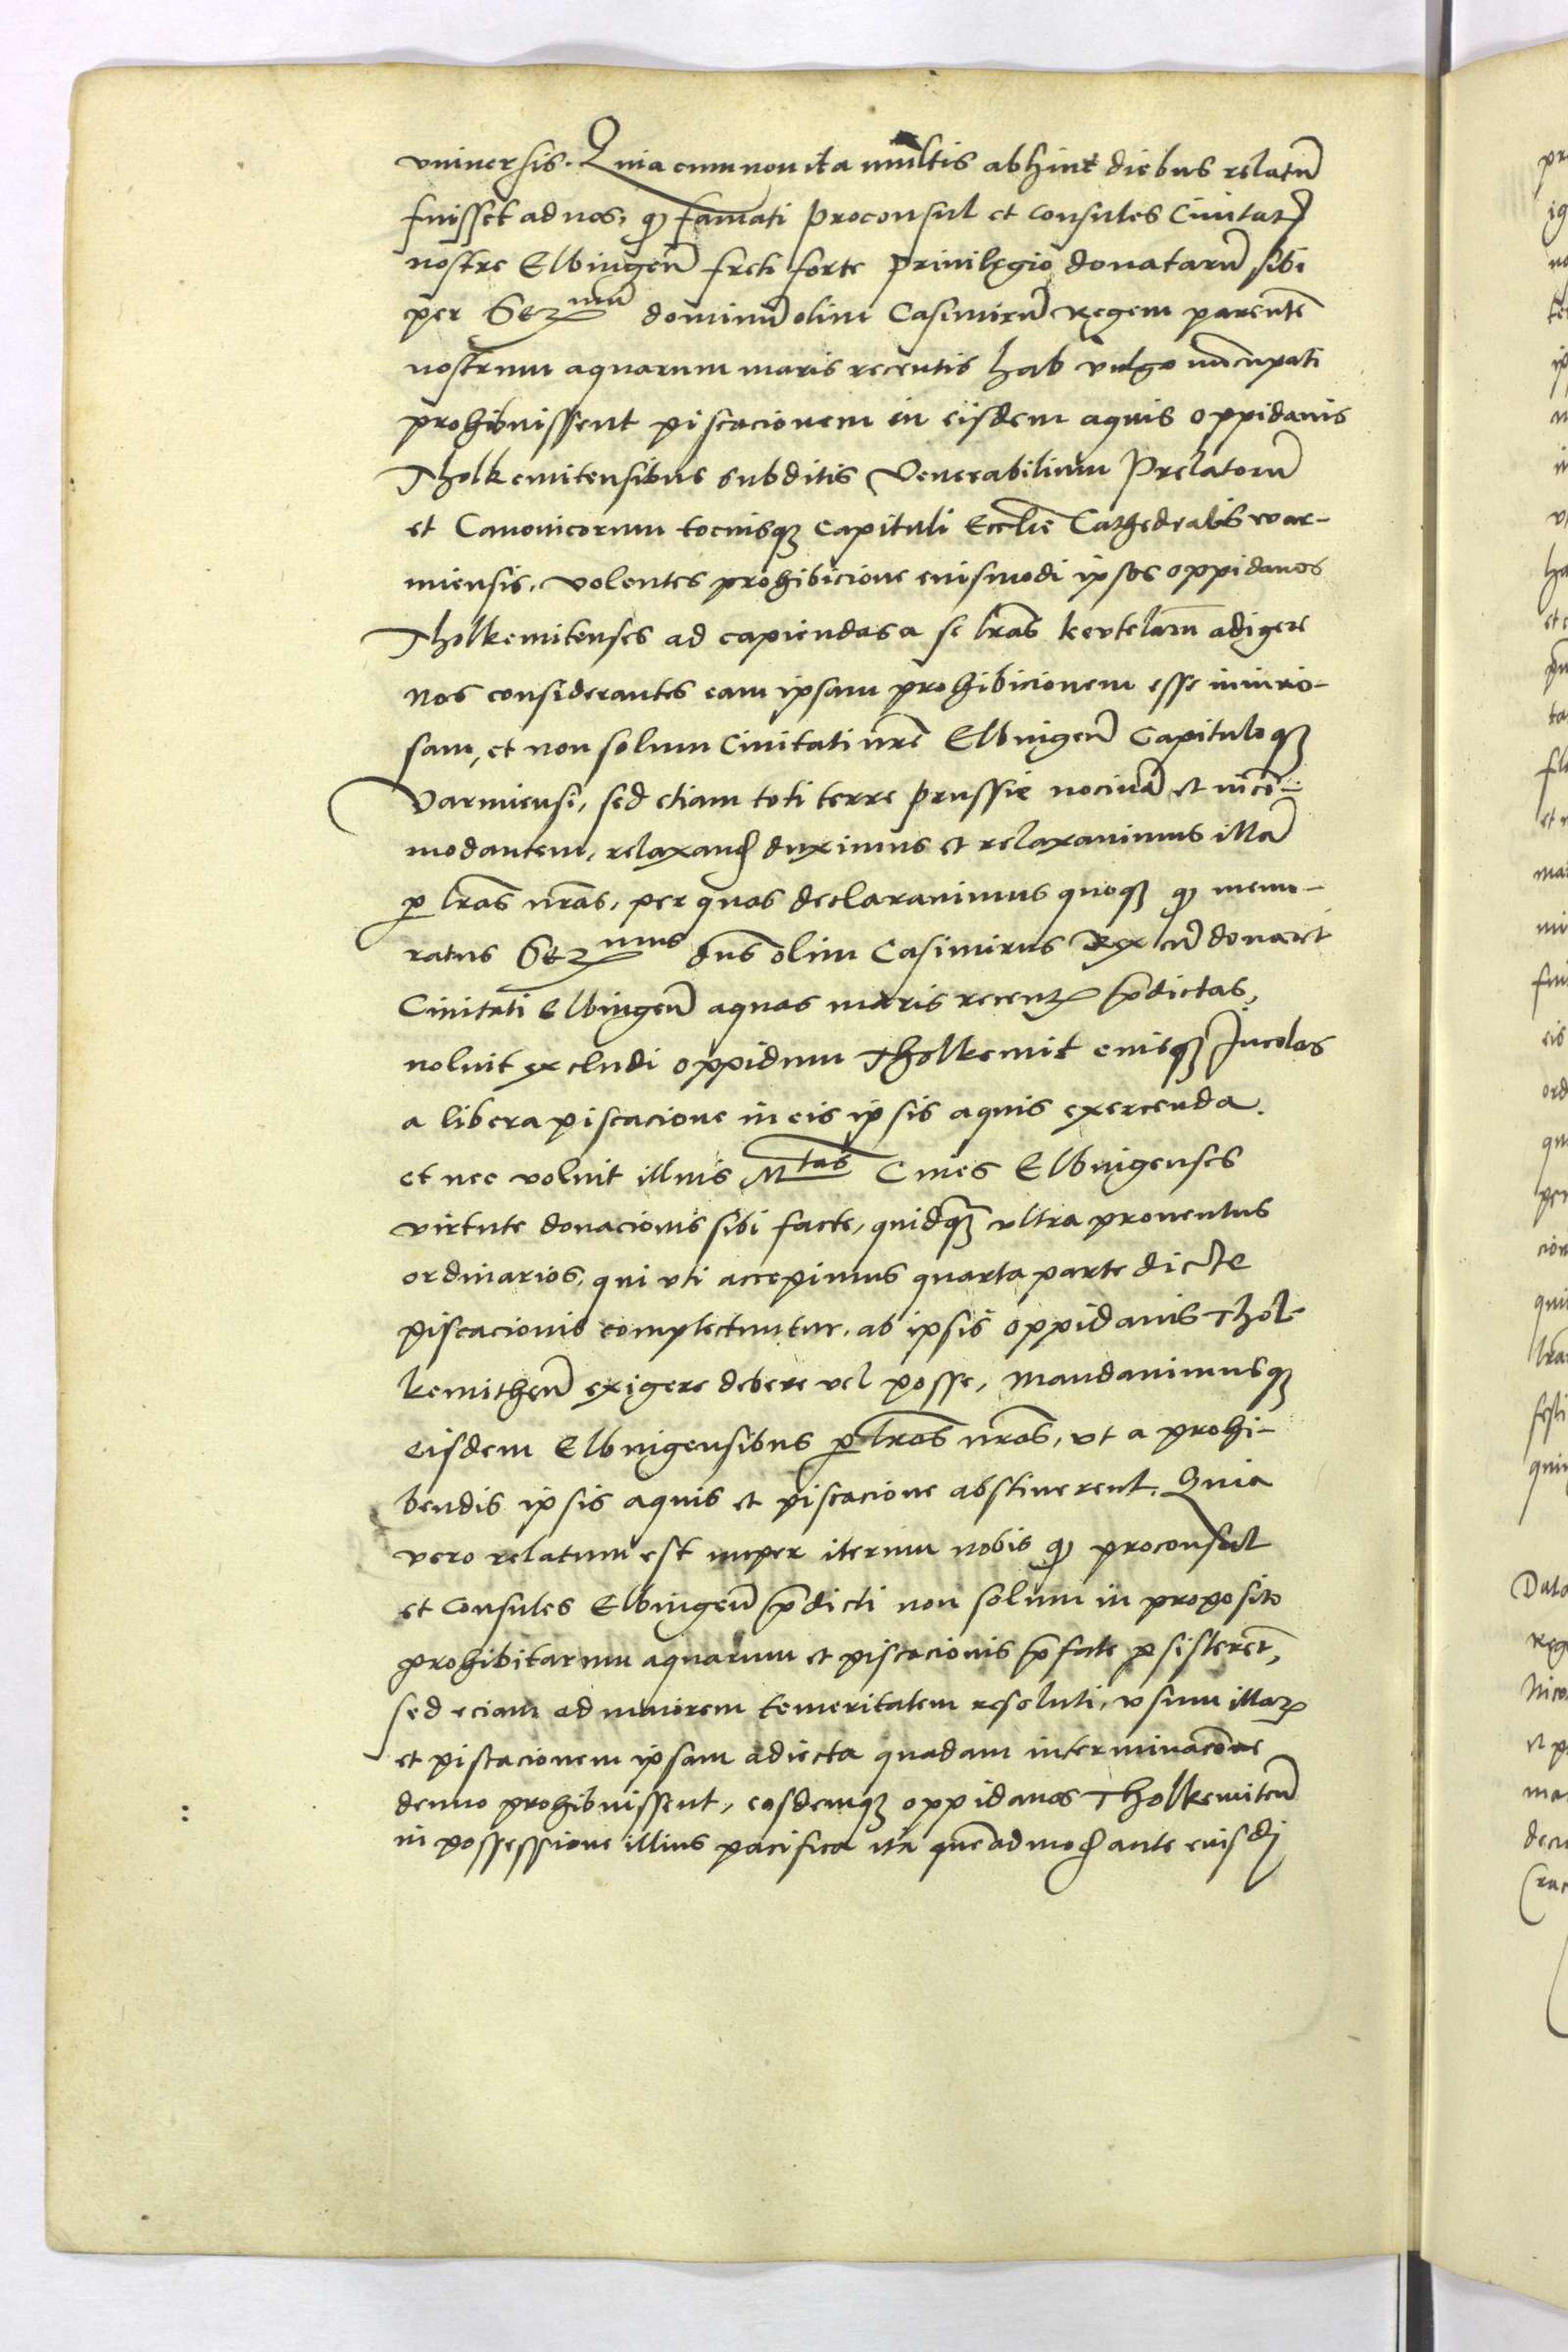 vniuersis. Quia cum non ita multis abhinc diebus relatū
fuisset ad nos, qꝫ famati proconsul et consules Ciuitatꝭ
nostre Elbingen̄ freti forte priuilegio donatarū sibi
per Serᵐᵘᵐ dominū olim Casimirū Regem parentē
nostrum aquarum maris recentis hab vulgo nūcupati
prohibuissent piscacionem in eisdem aquis oppidanis
Tholkemitensibus subditis Venerabilium Prelatorū
et Canonicorum tociusqꝫ Capituli Eccl̄ie Cathedralis war-
miensis, volentes prohibicione eiusmodi ipsos oppidanos
Tholkemitenses ad capiendas a se lr̄as keutelarū adigere
Nos considerantes eam ipsam prohibicionem esse iniurio-
sam, et non solum Ciuitati nr̄e Elbingen̄ Capituloqꝫ
Varmiensi, sed etiam toti terre prussie nociuā et incō-
modantem, relaxand̄ duximus et relaxauimus illā
ꝑ lr̄as nr̄as, per quas declarauimus quoqꝫ qꝫ memo-
ratus Serᵐᵘˢ dn̄s olim Casimirus Rex cū donaret
Ciuitati Elbingen̄ aquas maris recentꝭ p̄dictas,
noluit excludi oppidum Tholkemit eiusqꝫ Incolas
a libera piscacione in eis ipsis aquis exercenda.
et nec voluit illius Mᵗᵃˢ Ciues Elbingenses
virtute donacionis sibi facte, quidqꝫ vltra prouentus
ordinarios, qui vti accepimus quarta parte dicte
piscacionis complectuntur, ab ipsis oppidanis Thol-
kemithen̄ exigere debere vel posse, Mandauimusqꝫ
eisdem Elbingensibus ꝑ lr̄as nr̄as, vt a prohi-
bendis ipsis aquis et piscacione abstinerent. Quia
vero relatum est nuper iterum nobis qꝫ proconsul
et Consules Elbingen̄ p̄dicti non solum in proposito
prohibitarum aquarum et piscacionis p̄fate ꝑsisterēt,
sed eciam ad maiorem temeritatem resoluti, vsum illarꝝ
et piscacionem ipsam adiecta quadam interminacōne
denuo prohibuissent, eosdemqꝫ oppidanos Tholkemiten̄
in possessione illius pacifica ita quēadmod̄ ante eiusdj